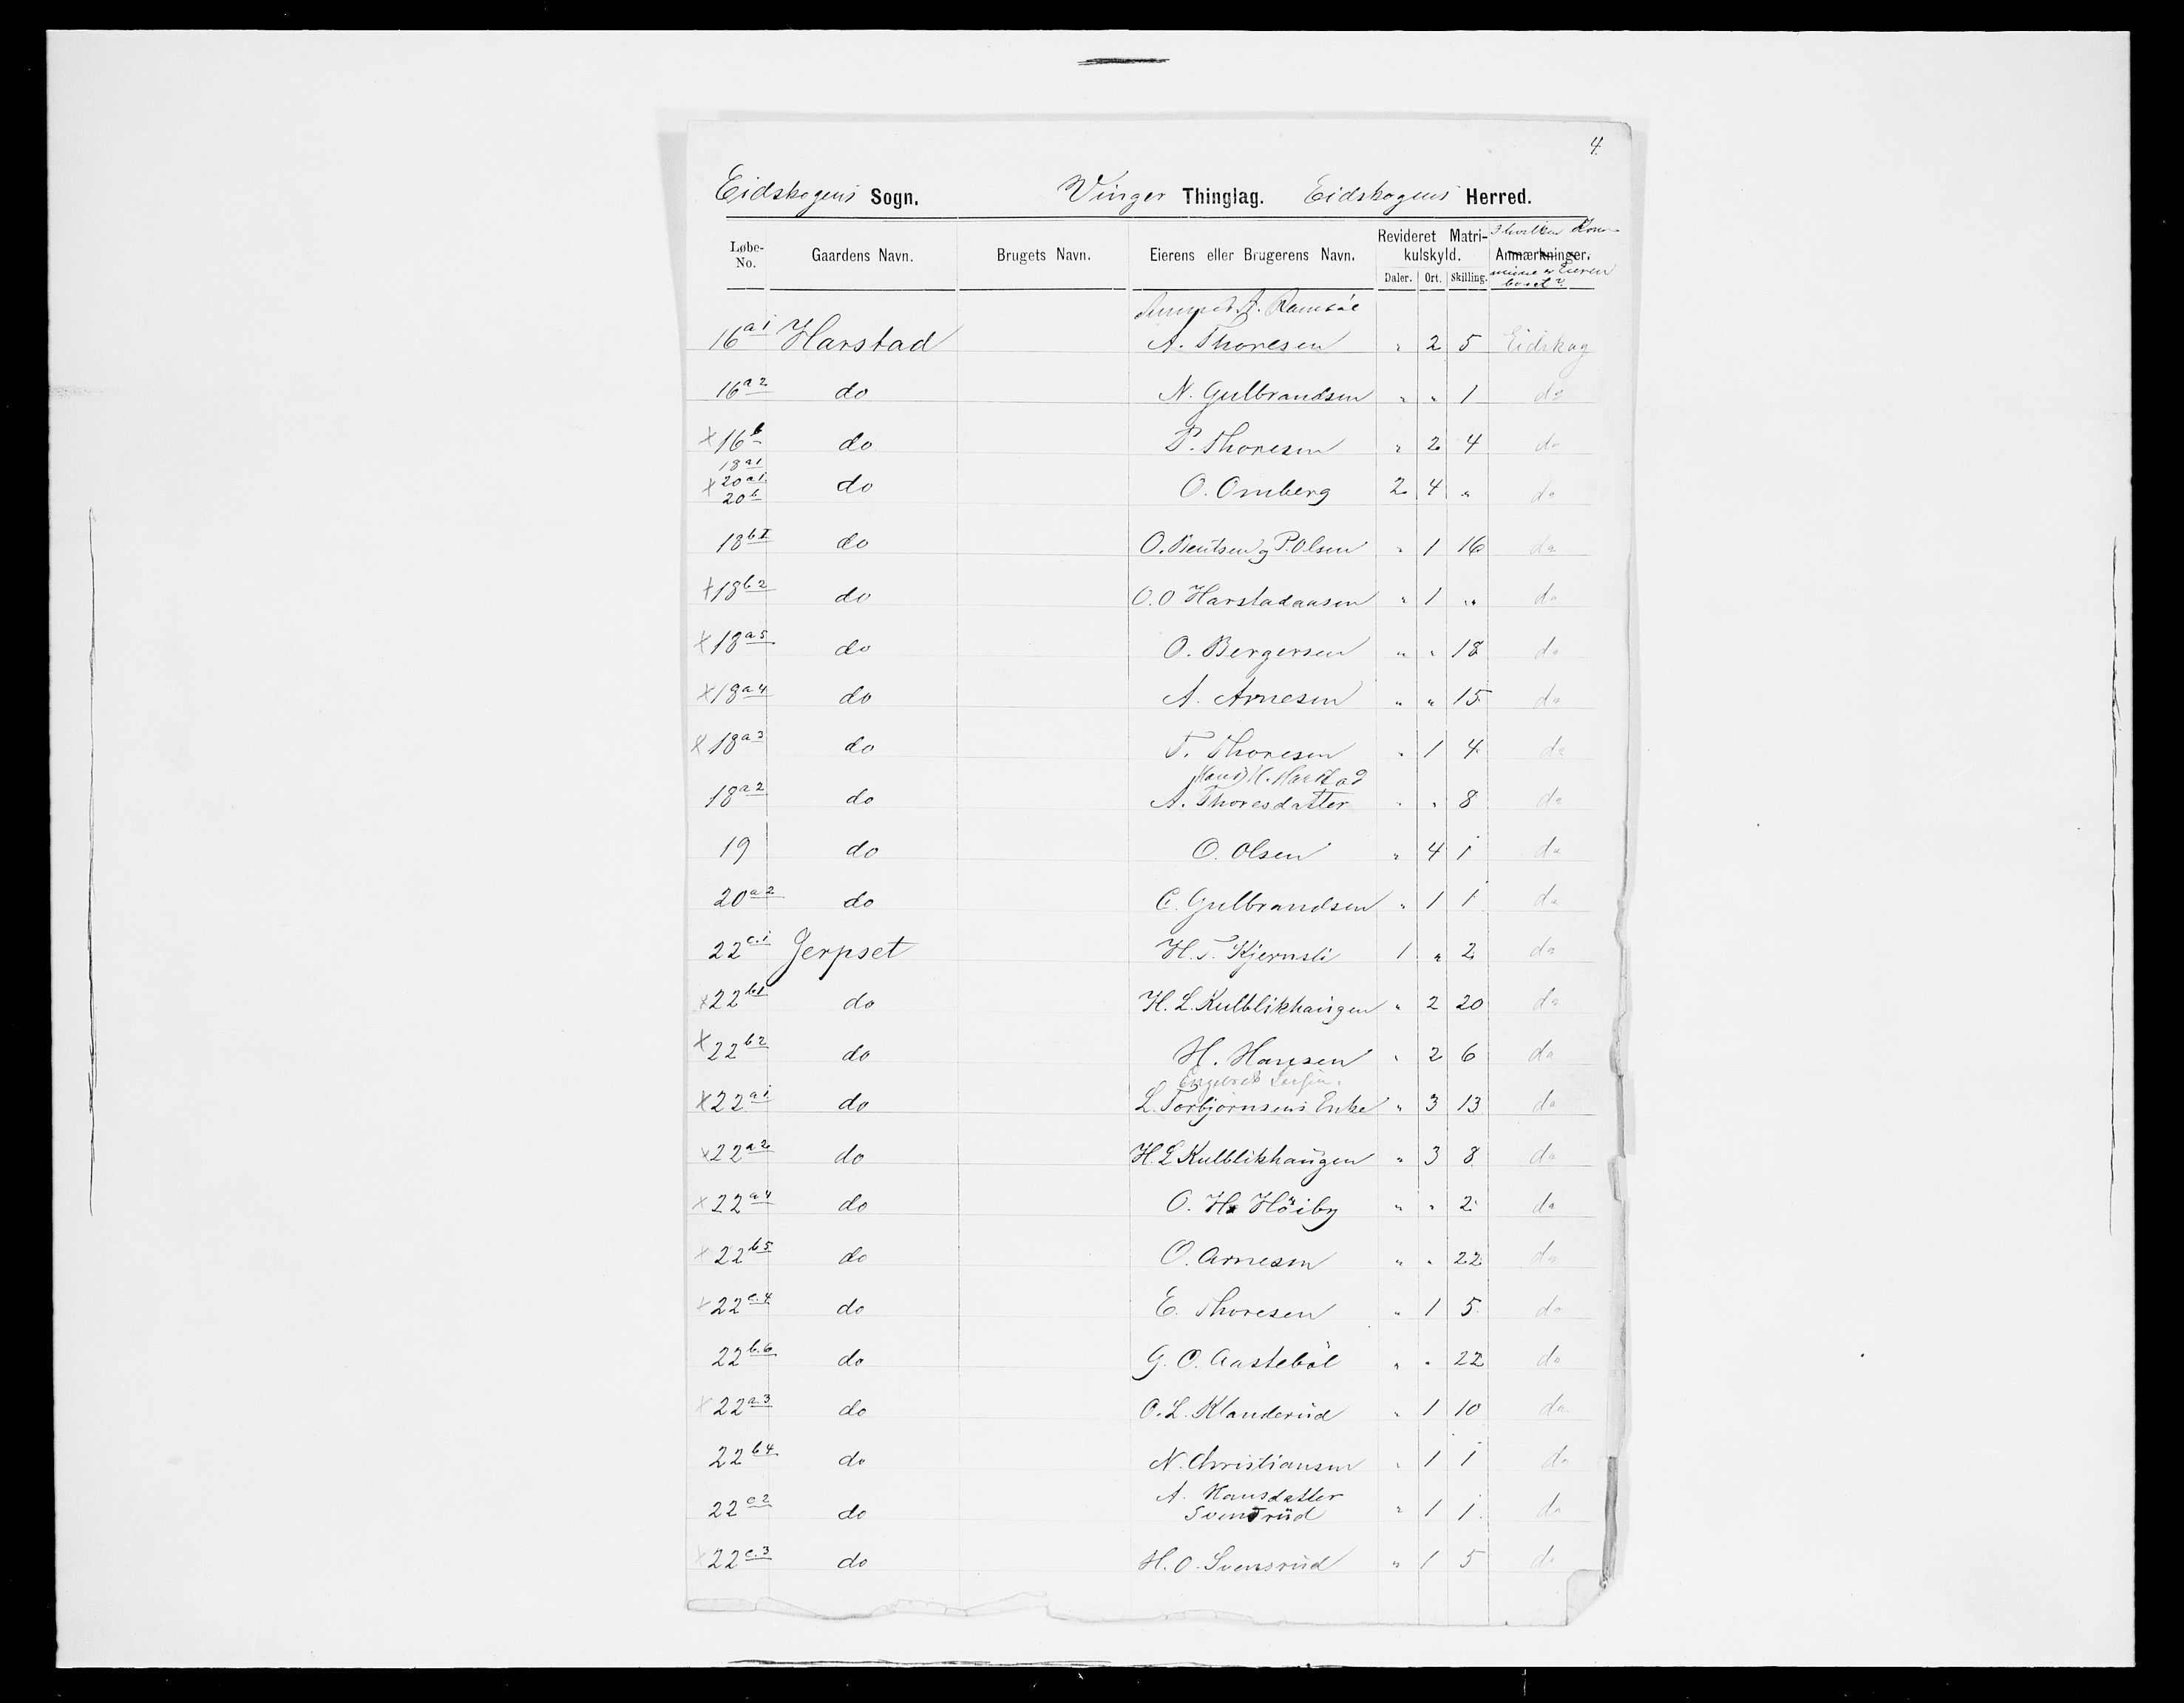 4.
Eidskogens Sogn. Vinger Thinglag. Eidskogens Herred.
Løbe-No. Gaardens Navn. Brugets Navn. Eierens eller Brugerens Navn. Revideret Matrikulskyld. Daler. Ort. Skilling. Anmærkninger. I hvilken Kommune er Eieren bosat?
16 a1 Harstad A. Thoresen " 2 5 Eidskog
16 a2 do N. Gulbrandsen " " 1 do
x 16 b do P. Thoresen " 2 4 do
18 a1
x 20 a1 do O. Omberg 2 4 " do
20 b
18 b1 do O. Bentsen og P. Olsen " 1 16 do
x 18 b2 do O. O Harstadaasen " 1 " do
x 18 a5 do O. Bergersen " " 18 do
x 18 a4 do A. Arnesen " " 15 do
x 18 a3 do T. Thoresen " 1 4 do
H. Harstad
18 a2 do A. Thoresdatter " " 8 do
19 do O. Olsen " 4 1 do
20 a2 do C. Gulbrandsen " 1 1 do
22 c.1 Jerpset H. T. Kjernsli 1 " 2 do
x 22 b1 do H. L. Kulblikhaugen " 2 20 do
x 22 b2 do H. Hansen " 2 6 do
Engebret
x 22 a1 do L. Torbjørnsens Enke " 3 13 do
x 22 a2 do H. L Kulblikhaugen " 3 8 do
x 22 a4 do O. H. Høiby " " 2 do
x 22 b5 do O. Arnesen " " 22 do
x 22 c.4 do E. Thoresen " 1 5 do
22 b.6 do G. O. Aastebøl " " 22 do
x 22 a.3 do O. L. Klanderud " 1 10 do
22 b4 do N. Christiansen " 1 1 do
22 c2 do A. Hansdatter Svensrud " 1 1 do
x 22 c.3 do H. O. Svensrud " 1 5 do